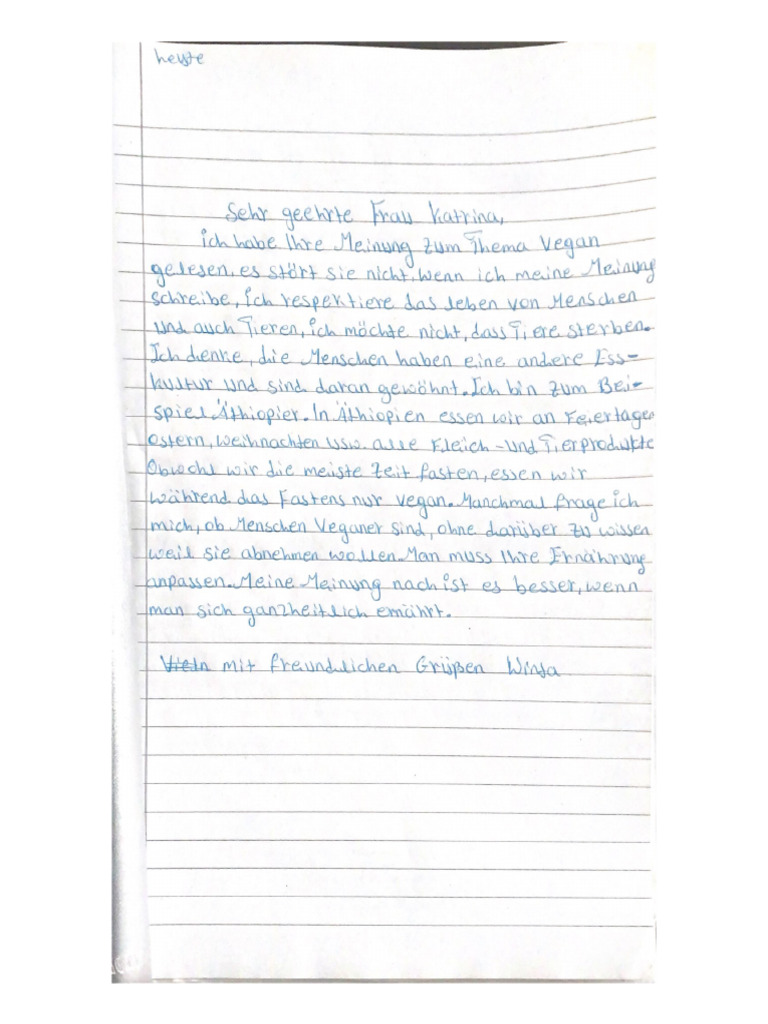 heute
Sehr geehrte Frau Katrina,
ich habe Ihre Meinung zum Thema Vegan
gelesen, es stört sie nicht, wenn ich meine Meinung
schreibe, ich respektiere das leben von Menschen
und auch Tieren, ich möchte nicht, dass Tiere sterben.
Ich denke, die Menschen haben eine andere Ess-
kultur und sind daran gewöhnt. Ich bin zum Bei-
spiel Äthiopier. In Äthiopien essen wir an Feiertagen
ostern, weihnachten usw alle Fleich-und Tierprodukte
Obwohl wir die meiste Zeit fasten, essen wir
während das Fastens nur vegan. Manchmal frage ich
mich, ob Menschen Veganer sind, ohne darüber zu wissen
weil sie abnehmen wollen. Man muss Ihre Ernährung
anpassen. Meine Meinung nach ist es besser, wenn
man sich ganzheitlich ernährt.
mit freundlichen Grüßen